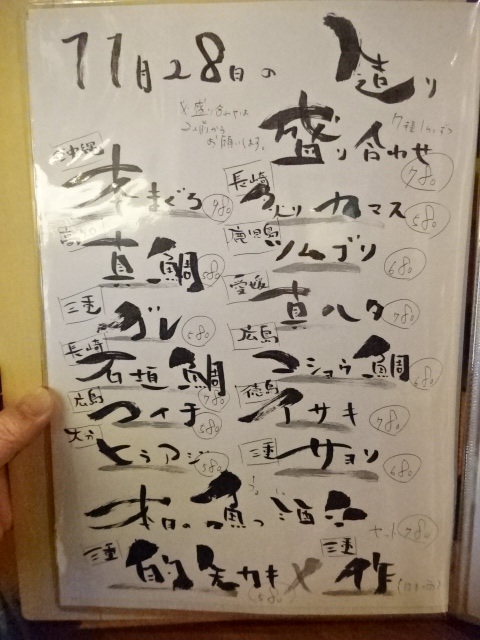 11月28日の 造り
※盛り合わせは
2人前から
お願いします。
盛り合わせ 780
沖縄 本まぐろ 980
長崎 カマス 580
真鯛 580
鹿児島 ソムブリ 680
三重 グレ 580
愛媛 真ハタ 780
長崎 石垣鯛 780
広島 コショウ鯛 680
広島 マイチ 580
徳島 イサキ 780
大分 ヒラアジ 580
三重 サヨリ 680
本日の 780
三重 的矢カキ × 三重 作